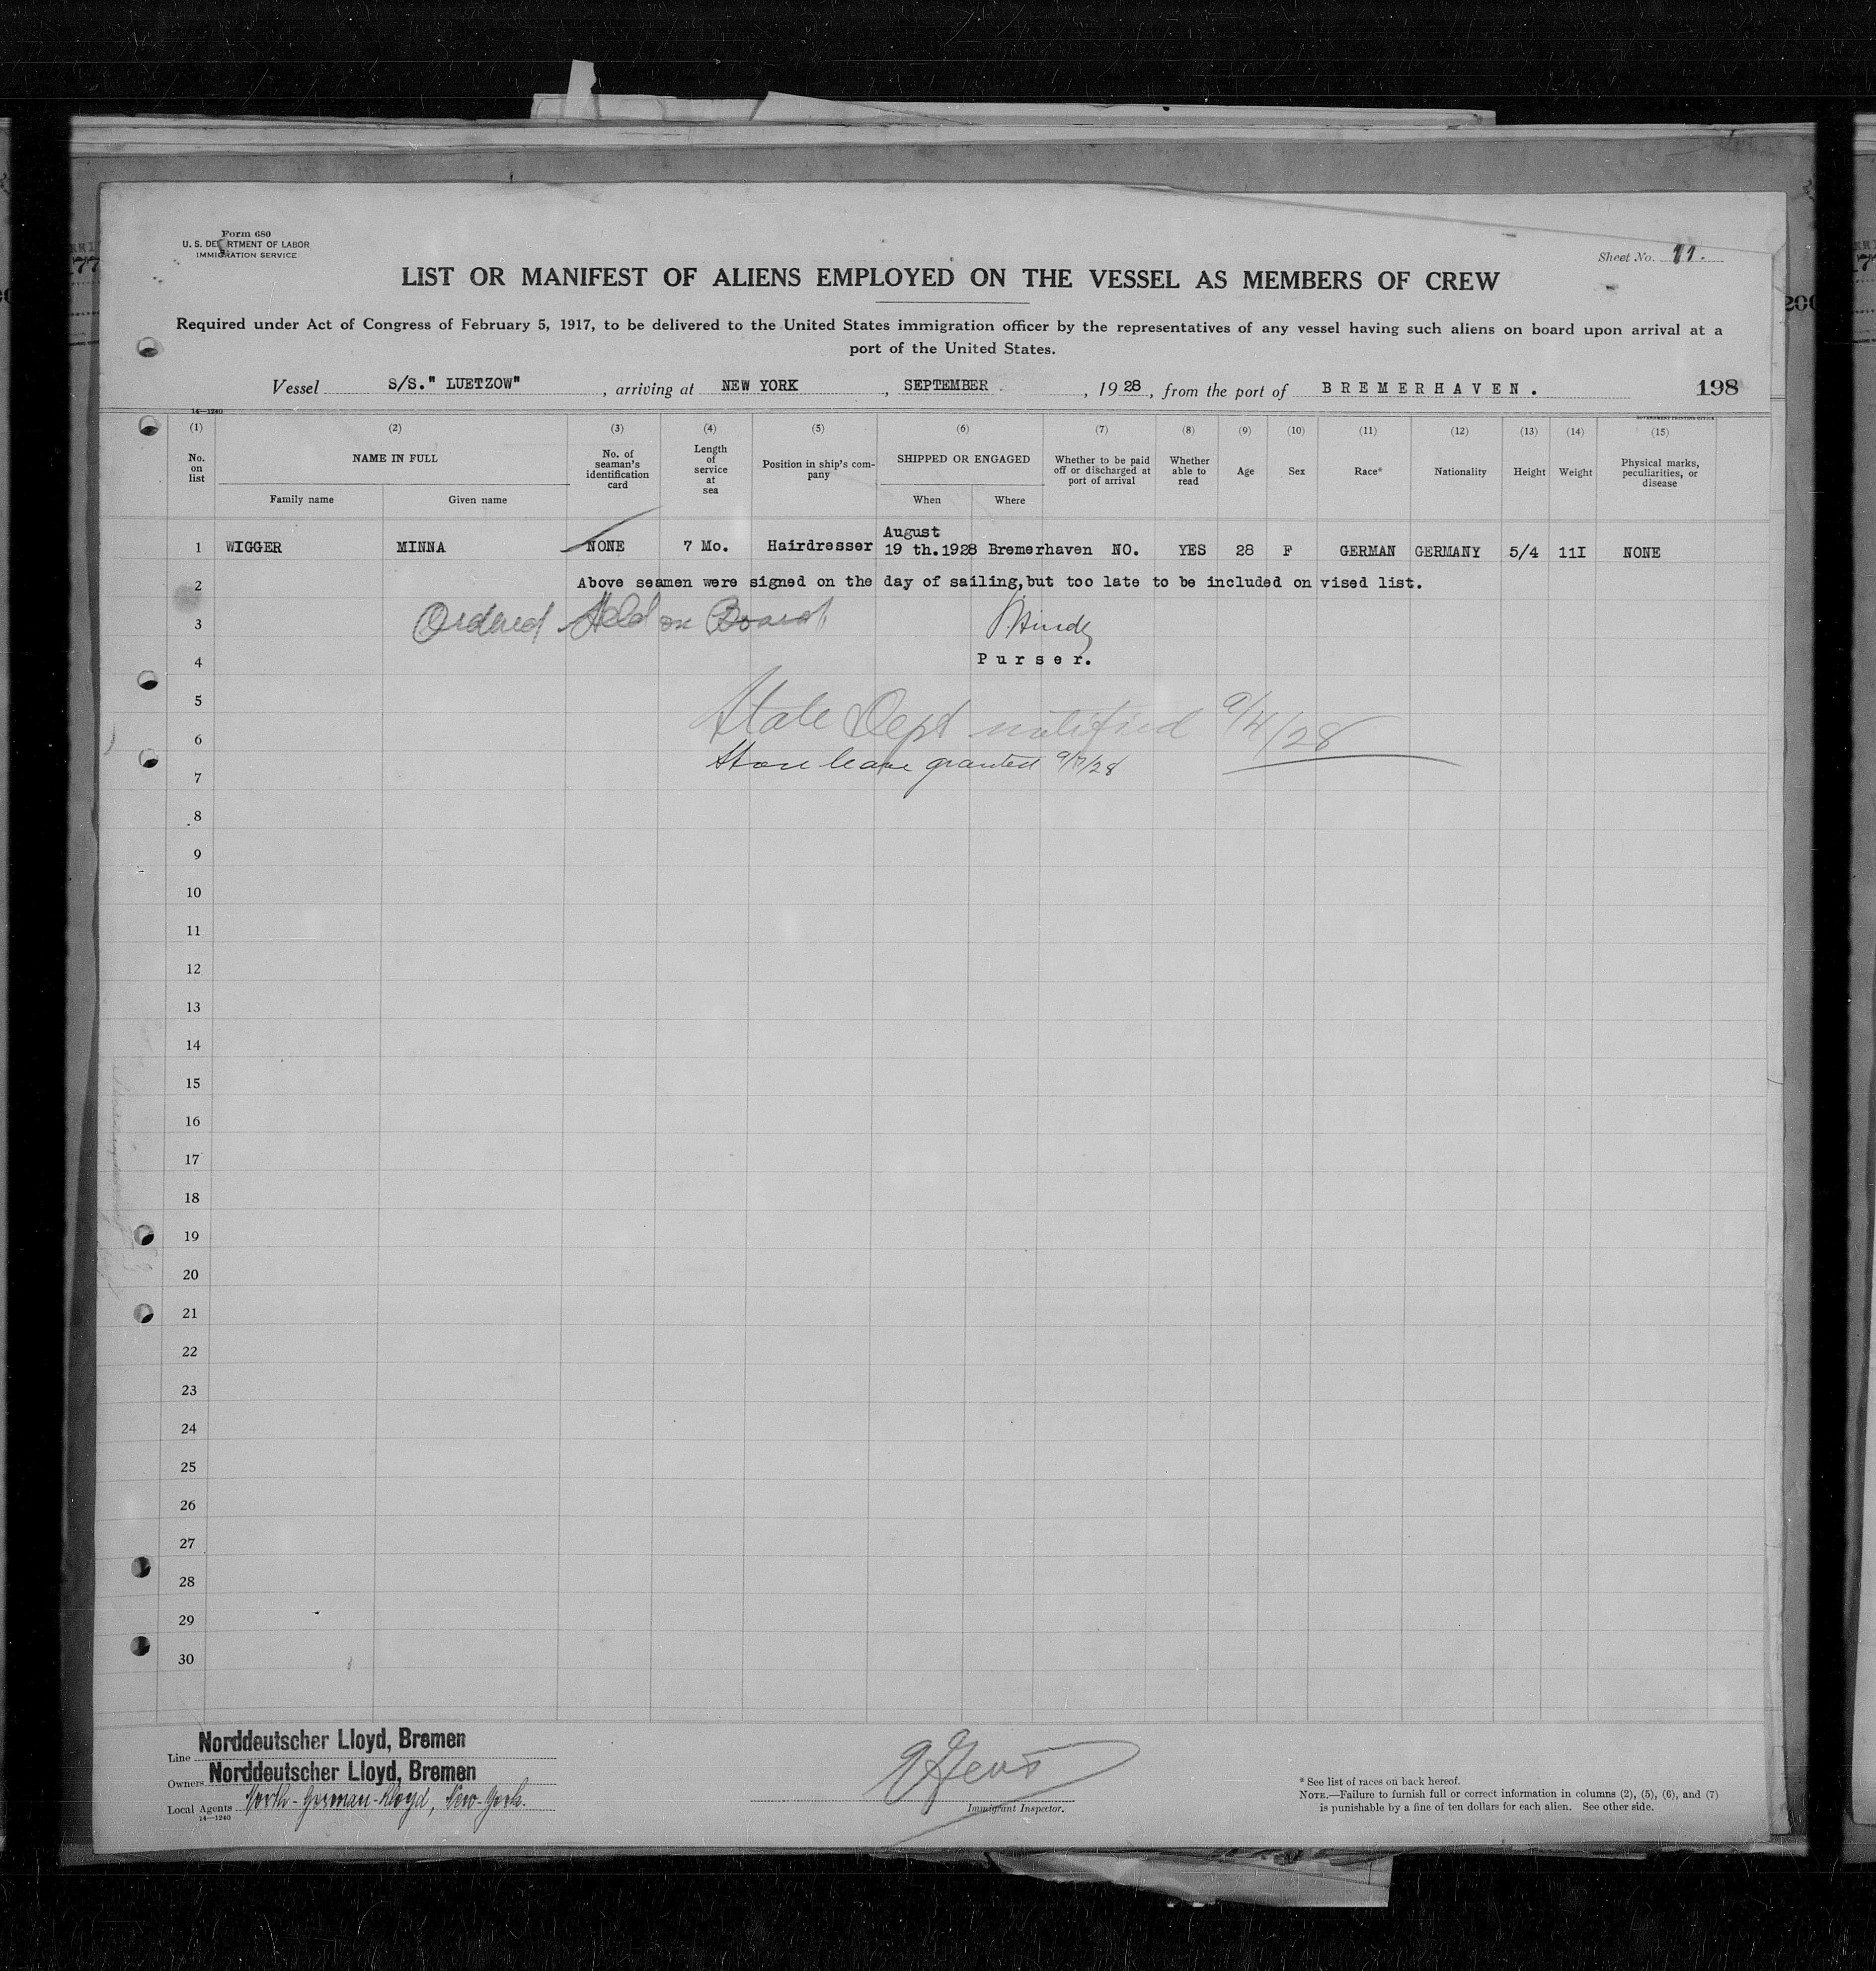 Form 680
U. S. DEPARTMENT OF LABOR
IMMIGRATION SERVICE
Sheet No. 11.
LIST OR MANIFEST OF ALIENS EMPLOYED ON THE VESSEL AS MEMBERS OF CREW
Required under Act of Congress of February 5, 1917, to be delivered to the United States immigration officer by the representatives of any vessel having such aliens on board upon arrival at a
port of the United States.
Vessel S/S." LUETZOW", arriving at NEW YORK, SEPTEMBER, 1928, from the port of BREMERHAVEN. 198
14—1240
GOVERNMENT PRINTING OFFICE
(1) (2) (3) (4) (5) (6) (7) (8) (9) (10) (11) (12) (13) (14) (15)
No. on list
NAME IN FULL
Family name
Given name
No. of seaman's identification card
Length of service at sea
Position in ship's company
SHIPPED OR ENGAGED
When
Where
Whether to be paid off or discharged at port of arrival
Whether able to read
Age
Sex
Race*
Nationality
Height
Weight
Physical marks, peculiarities, or disease
1 WIGGER MINNA NONE 7 Mo. Hairdresser August 19 th.1928 Bremerhaven NO. YES 28 F GERMAN GERMANY 5/4 11I NONE
2 Above seamen were signed on the day of sailing,but too late to be included on vised list.
3 Ordered Held on Board
4 Purser.
5
State Dept notified 9/4/28
6
Shore leave granted 9/7/28
7
8
9
10
11
12
13
14
15
16
17
18
19
20
21
22
23
24
25
26
27
28
29
30
Line Norddeutscher Lloyd, Bremen
Owners Norddeutscher Lloyd, Bremen
Local Agents North-German-Lloyd, New-York.
14—1240
Immigrant Inspector.
* See list of races on back hereof.
NOTE.—Failure to furnish full or correct information in columns (2), (5), (6), and (7)
is punishable by a fine of ten dollars for each alien. See other side.